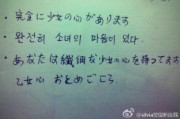 • 完全に少女の心があります
• 완전히 소녀의 마음이 있다.
• あなたは繊細な少女の心を持ってます
乙女心 おとめごころ